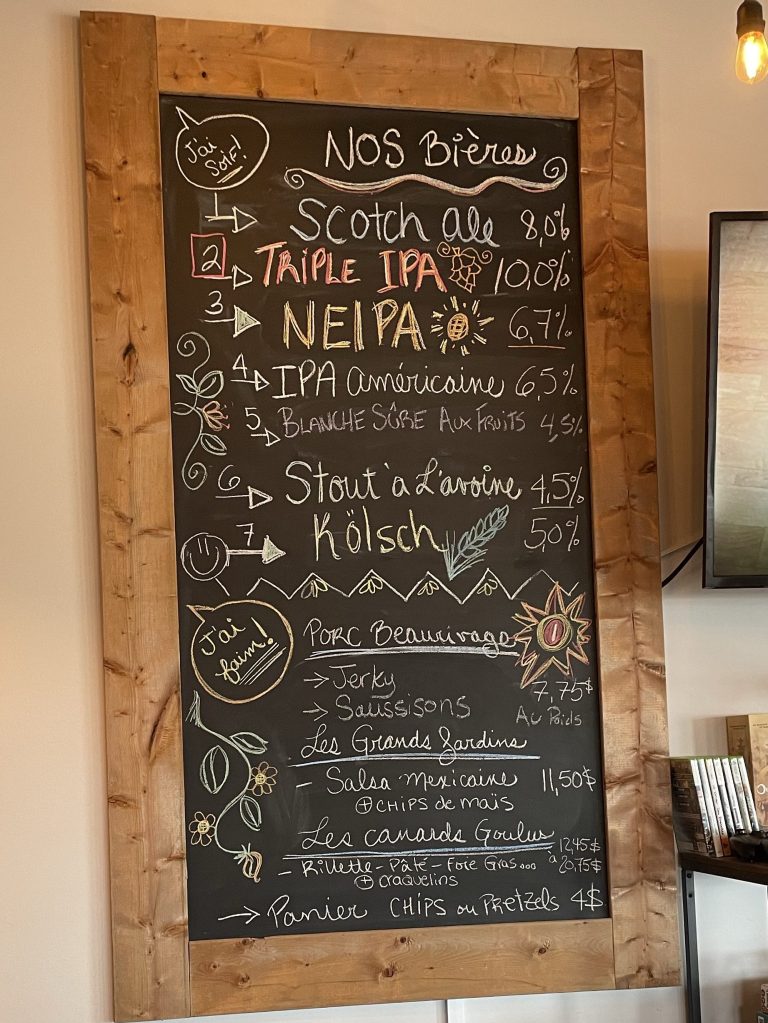 J'ai
soif!
NOS Bières
Scotch ale 8,0%
2 TRiPLE IPA 10,0%
3 NEIPA 6,7%
4 IPA américaine 6,5%
5 BLANCHE SÛRE AUX FRUITS 4,5%
6 Stout à L'avoine 4,5%
7 Kölsch 5,0%
J'ai
faim!
PORC Beaurivage
→ Jerky 7,75$
→ Saussisons Au Poids
Les Grands Jardins
- Salsa mexicaine 11,50$
⊕ CHIPS de maïs
Les canards Goulus 12,45$
- Rillette - Pâté - Foie Gras... à 20,75$
⊕ craquelins
→ Panier CHIPS ou PRETZELS 4$